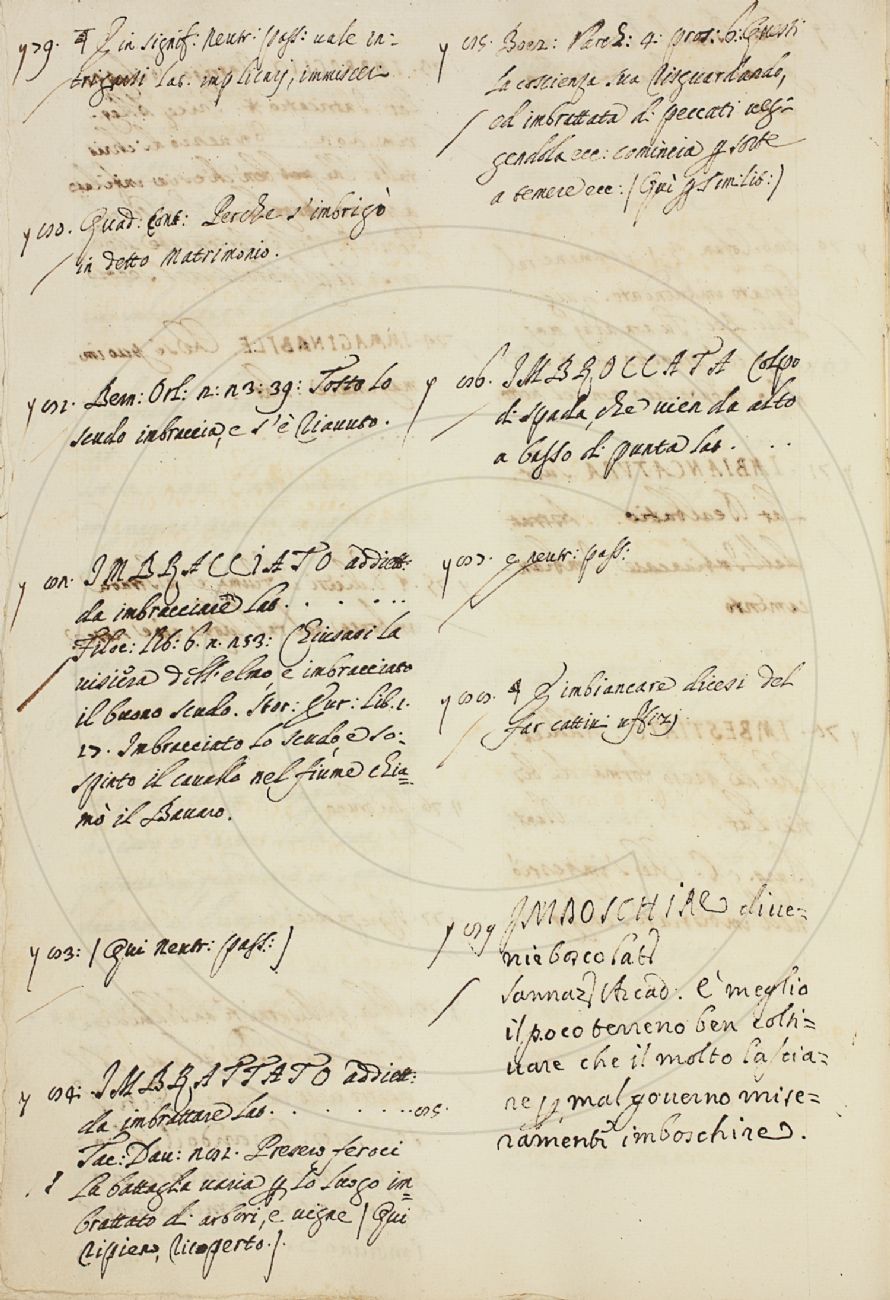 y 79. ¶ E in signif. neutr: pass: uale in-
trigarsi lat. implicarj, immisceri
y 80. Quad: Cont: Perche s'imbrigò
in detto Matrimonio.
y 81. Bern: Orl: 2: 23: 39: Tosto lo
scudo imbraccia, e s'è riauuto.
y 82. IMBRACCIATO addiett:
da imbracciare lat. . . . . . .
Filoc: lib: 6. n. 253: Chiusasi la
uisiera dell'elmo, e imbracciato
il buono scudo. Stor: Eur: lib. 1.
27. Imbracciato lo scudo, e so-
spinto il cauallo nel fiume chia=
mò il Bauaro.
y 83: (Qui neutr: pass:)
y 84: IMBRATTATO addiett:
da imbrattare lat. . . . . . . . 85.
Tac: Dau: 281. Presero feroci
la battaglia uaria p lo luogo im=
brattato di arbori, e uigne (Qui
ripieno, ricoperto.).
y 85. Boez: Varch: 4: pros: 6: Questi
la coscienza sua risguardando,
ed imbrattata di peccati ueg-
gendola ecc: comincia p sorte
a temere ecc: (Quì p similit:)
y 86. IMBROCCATA Colpo
di spada, che uien da alto
a basso di punta lat. . . .
y 87. e neutr: pass:
y 88. ¶ E imbiancare dicesi del
far cattiui uffizj
y 89 IMBOSCHIRE diue=
nir bosco lat.
Sannaz. Arcad. È meglio
il poco terreno ben colti=
uare che il molto lascia=
re p mal gouerno mise=
ramente imboschire.